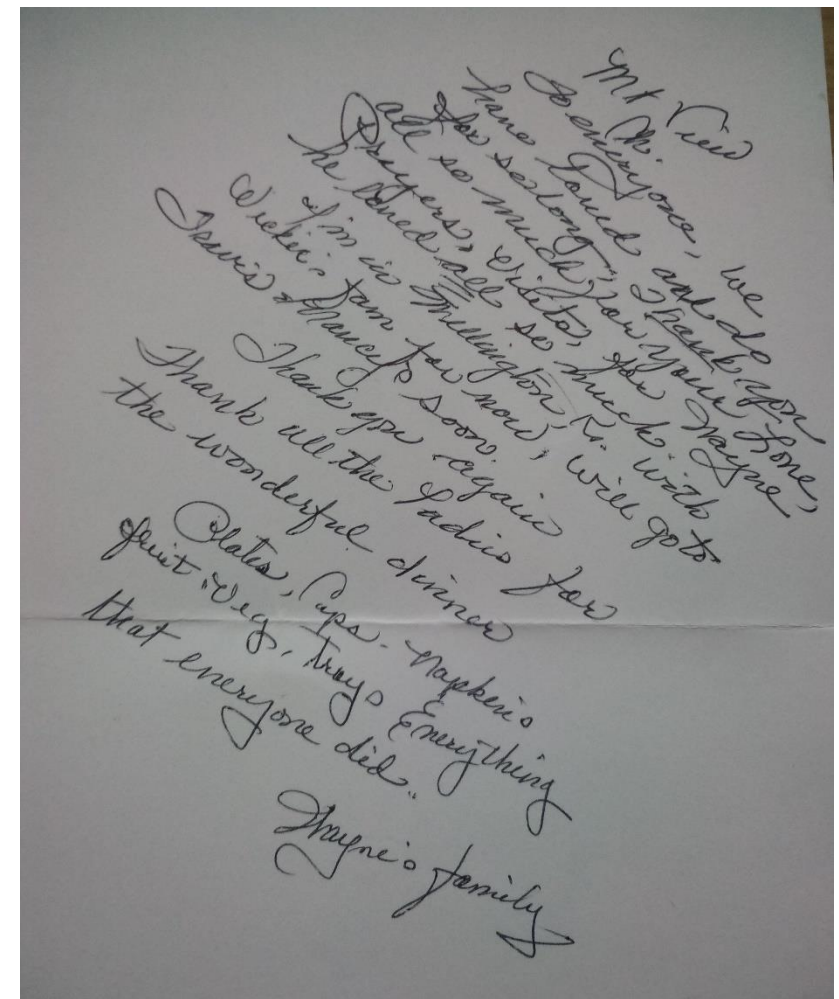 Mt View
Ch.
To everyone, we
have loved and do
for so long, Thank you
all so much, for your Love,
Prayers, visits, for Wayne,
he loved all so much.
I'm in Millington, with
fam for now, will go to
Travis & Nancy's soon.
Thank you again
Thank all the Ladies for
the wonderful dinner
Plates, Cups, Napkins
fruit, Veg, Trays Everything
that everyone did.
Wayne's family